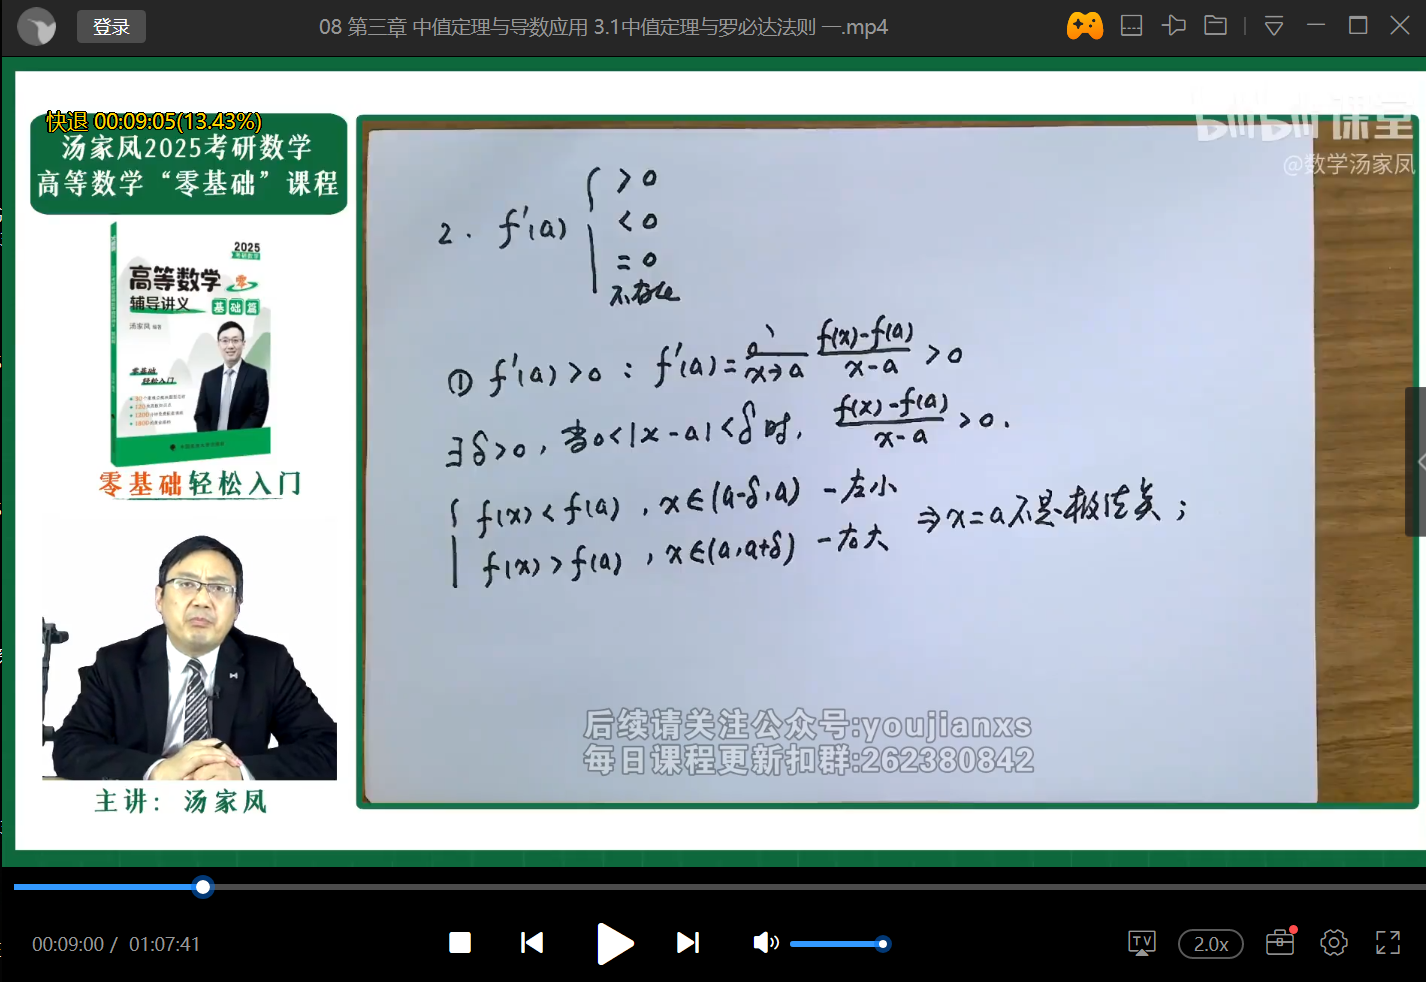 登录
08 第三章 中值定理与导数应用 3.1中值定理与罗必达法则 一.mp4
快退 00:09:05(13.43%)
汤家凤2025考研数学
高等数学“零基础”课程
2025
高等数学 零
辅导讲义 基础篇
汤家凤
零基础
轻松入门
零基础轻松入门
主讲：汤家凤
bilibili 课堂
@数学汤家凤
2. f'(a) { >0
<0
=0
不存在
① f'(a)>0 : f'(a)= lim x→a (f(x)-f(a))/(x-a) >0
∃δ>0, 当0<|x-a|<δ时, (f(x)-f(a))/(x-a) >0.
{ f(x)<f(a), x∈(a-δ,a) -左小
f(x)>f(a), x∈(a,a+δ) -右大 ⇒x=a不是极值点;
后续请关注公众号:youjianxs
每日课程更新扣群:262380842
00:09:00 / 01:07:41
TV
2.0x